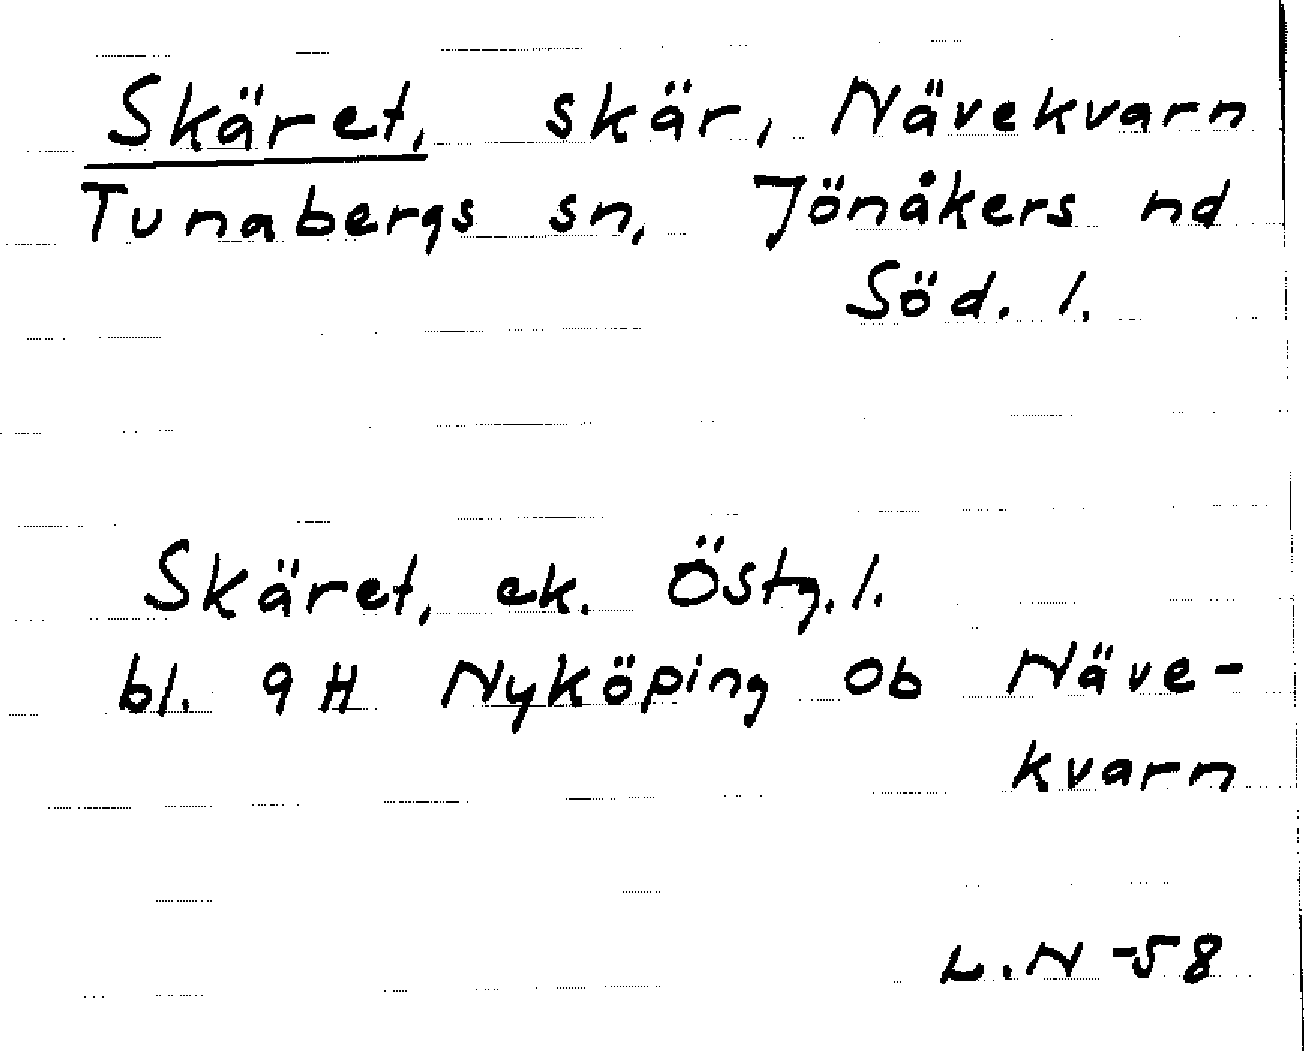 Skäret, skär, Nävekvarn
Tunabergs sn, Jönåkers hd
Söd. l.
Skäret, ek. Östg. l.
bl. 9 H Nyköping Ob Näve-
kvarn
L.N -58